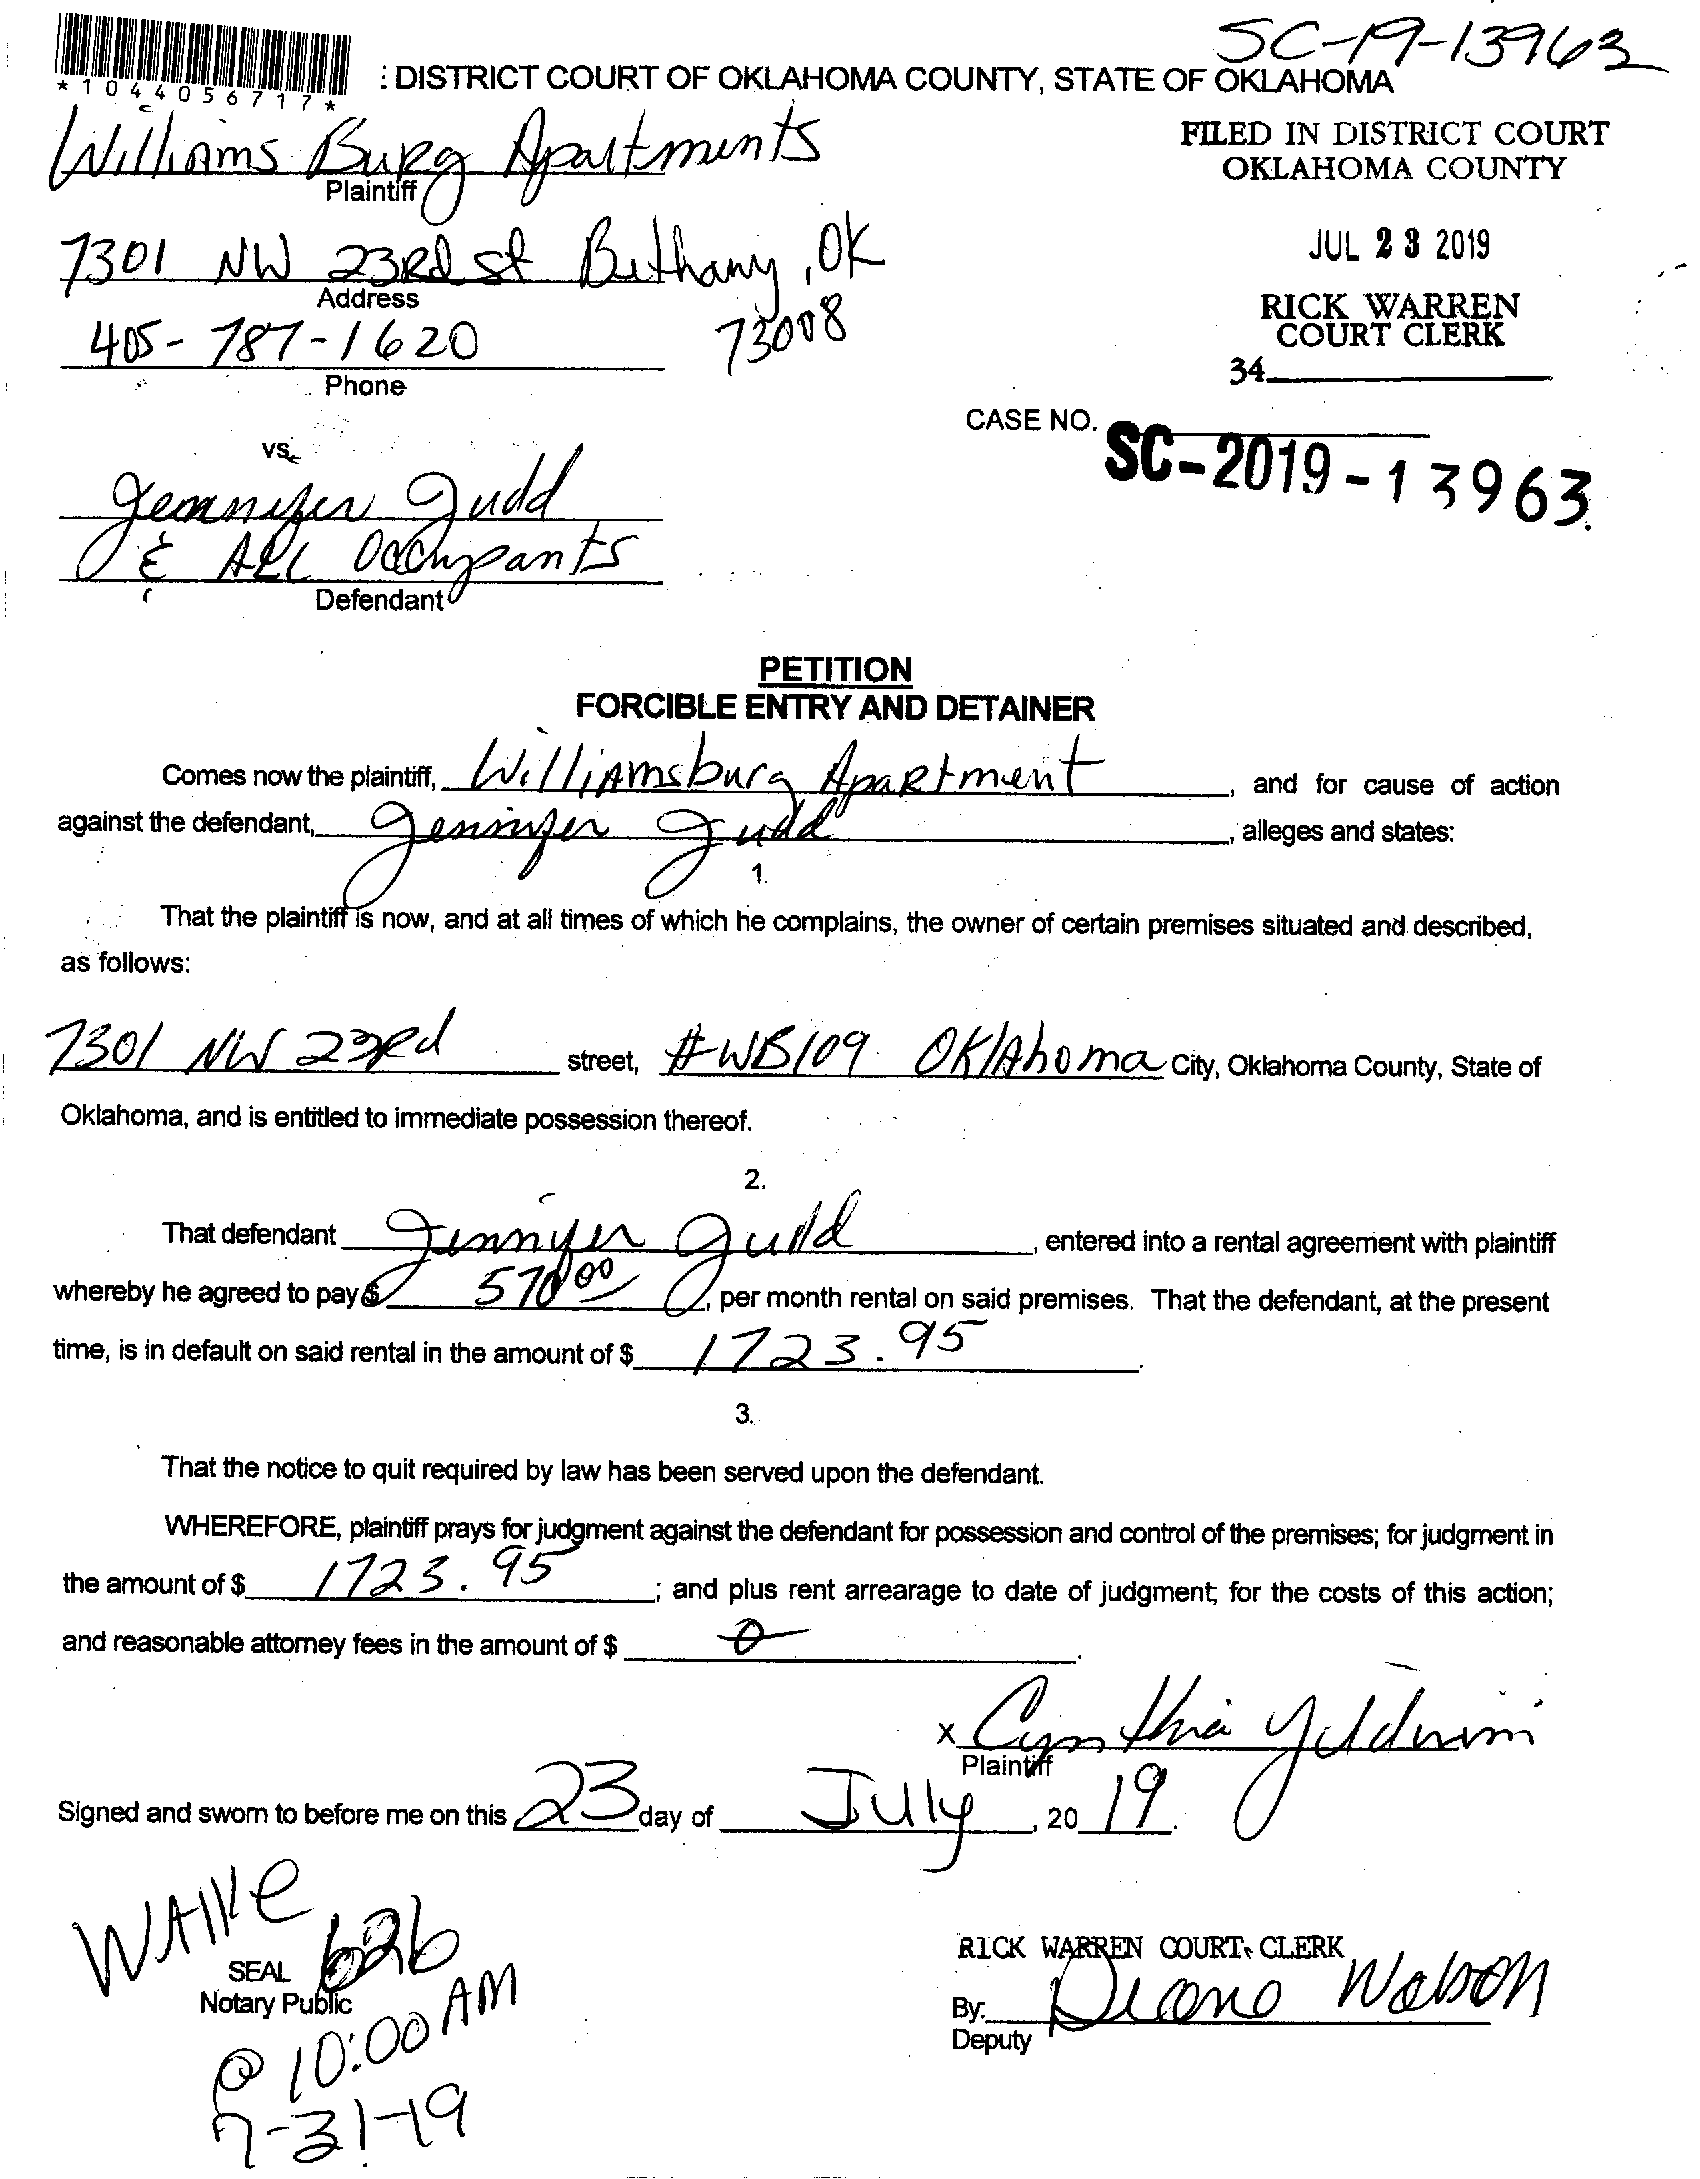 SC-19-13963
*1044056717*
: DISTRICT COURT OF OKLAHOMA COUNTY, STATE OF OKLAHOMA
Williams Burg Apartments
Plaintiff
FILED IN DISTRICT COURT
OKLAHOMA COUNTY
7301 NW 23Rd st Bethany, OK
Address
73008
JUL 23 2019
405-787-1620
Phone
RICK WARREN
COURT CLERK
34
CASE NO.
SC-2019-13963
vs.
Jennnifer Judd
& ALL Occupants
Defendant
PETITION
FORCIBLE ENTRY AND DETAINER
Comes now the plaintiff, Williamsburg Apartment, and for cause of action
against the defendant, Jennifer Judd, alleges and states:
1.
That the plaintiff is now, and at all times of which he complains, the owner of certain premises situated and described,
as follows:
7301 NW 23Rd street, #WB109 Oklahoma City, Oklahoma County, State of
Oklahoma, and is entitled to immediate possession thereof.
2.
That defendant Jennifer Judd, entered into a rental agreement with plaintiff
whereby he agreed to pay $ 570.00, per month rental on said premises. That the defendant, at the present
time, is in default on said rental in the amount of $ 1723.95.
3.
That the notice to quit required by law has been served upon the defendant.
WHEREFORE, plaintiff prays for judgment against the defendant for possession and control of the premises; for judgment in
the amount of $ 1723.95; and plus rent arrearage to date of judgment; for the costs of this action;
and reasonable attorney fees in the amount of $ 0.
x Cynthia
Plaintiff
Signed and sworn to before me on this 23 day of July, 20 19.
WAIVE
626
SEAL
Notary Public
@ 10:00 AM
7-31-19
RICK WARREN COURT CLERK
By: Diane Watson
Deputy